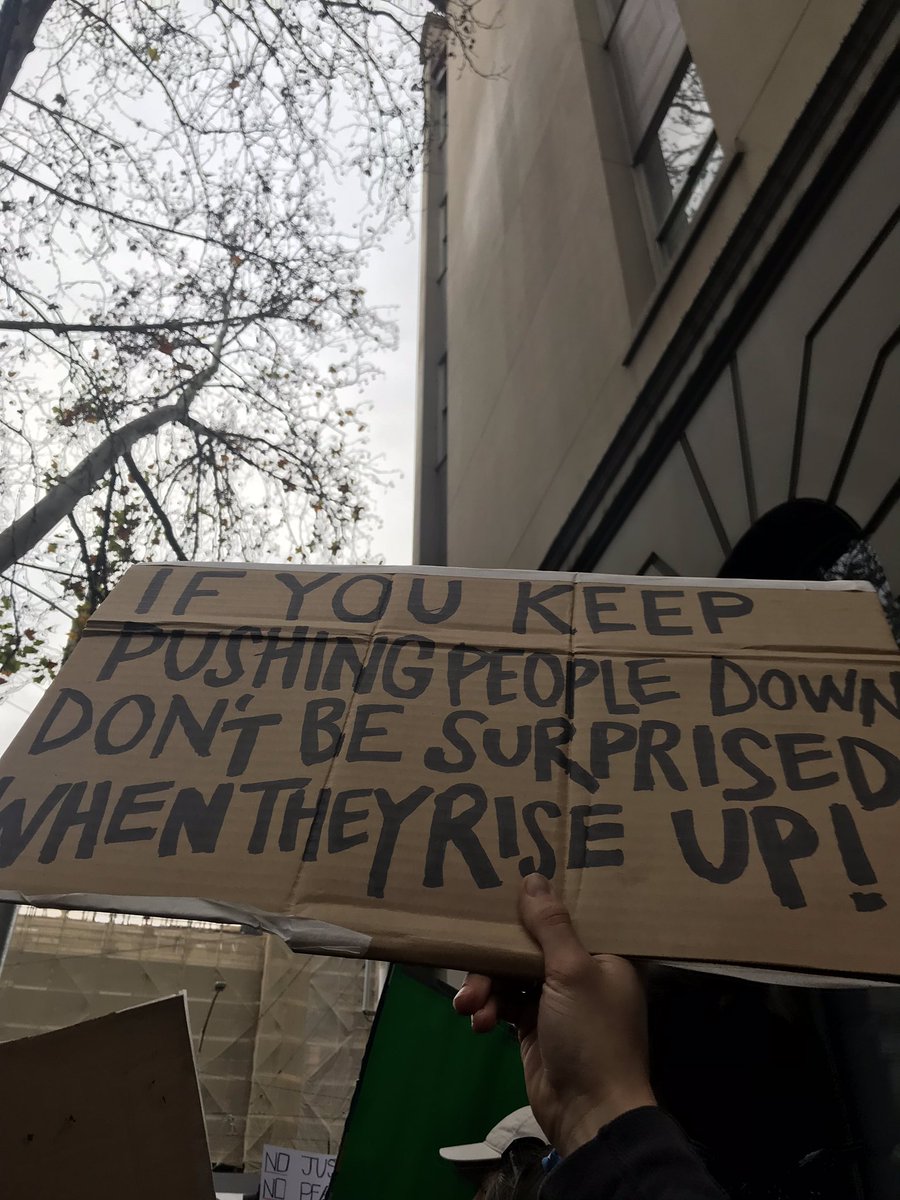 IF YOU KEEP
PUSHING PEOPLE DOWN
DON'T BE SURPRISED
WHEN THEY RISE UP!
NO JUS
NO PEA